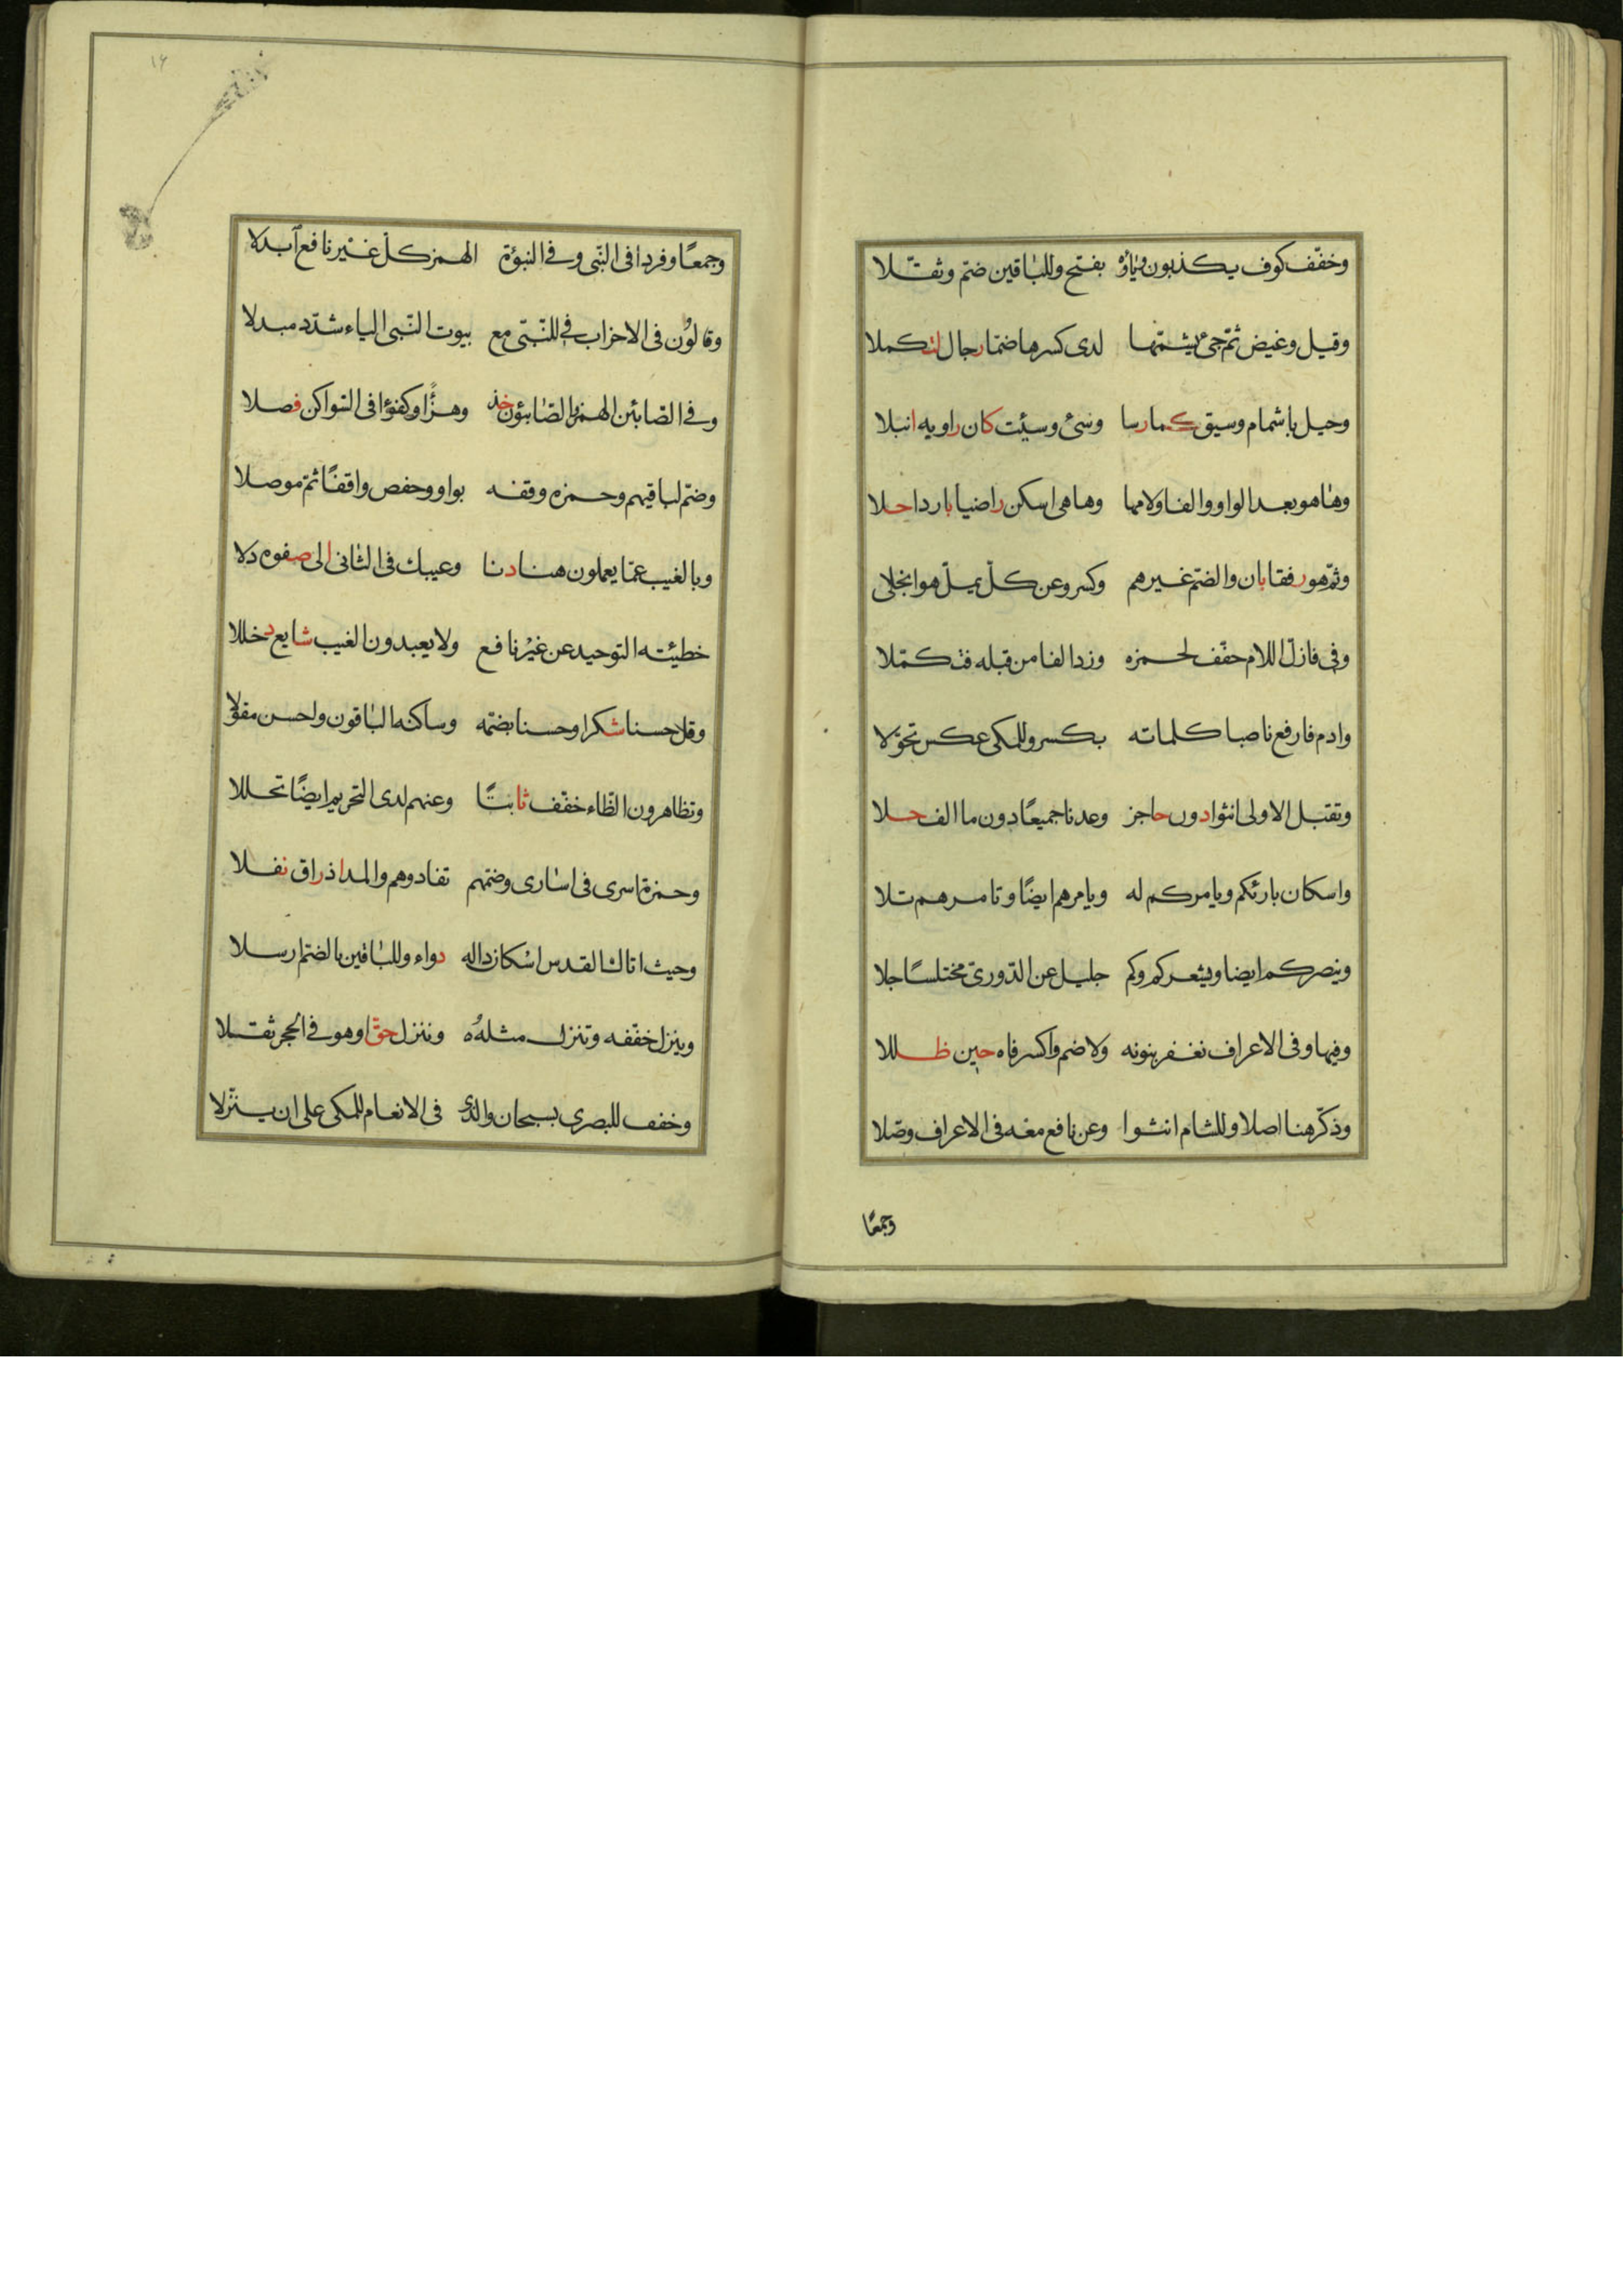 وخفّف كوف يكذبون وياؤه بفتح وللباقين ضمّ وثقّلا
وقيل وغيض ثمّ جئ يشمّها لدى كسرها ضمّا رجال لتكملا
وحيل بإشمام وسيق كما رسا وسئ وسيئت كان راويه انبلا
وها هو بعد الواو والفا ولامها وها هي اسكن راضيا باردا حلا
وثمّ هو رفقا بان والضمّ غيرهم وكسر وعن كلّ يملّ هو انجلى
وفي فازلّ اللام خفّف لحمزه وزد الفا من قبله فتكمّلا
وادم فارفع ناصبا كلماته بكسر وللمكى عكس تحوّلا
وتقتبل الاولى انثوا دون حاجز وعدنا جميعًا دون ما الف حلا
واسكان بارئكم ويامركم له ويامرهم ايضًا وتامرهم تلا
وينصركم ايضا ويشعركم وكم جليل عن الدّورىّ مختلسًا جلا
وفيها وفى الاعراف نغفر بنونه ولا ضم واكسر فاه حين ظللا
وذكّر هنا اصلا وللشام انثوا وعن نافع معه فى الاعراف وصّلا
وجمعًا
١٦
وجمعًا وفردا فى النّبى وفى النبوّة الهمز كلّ غير نافع آبدلا
وقالون فى الاحزاب فى للنّبىّ مع بيوت النّبى الياء شدّد مبدلا
وفى الصّابئين الهمز والصّابئون خذ وهزًا وكفؤا فى السّواكن فصلا
وضمّ لباقيهم وحمزه وقفه بواو وحفص واقفًا ثمّ موصلا
وبالغيب عمّا يعملون هنا دنا وغيبك فى الثانى الى صفوه دلا
خطيئته التوحيد عن غير نافع ولا يعبدون الغيب شايع دخللا
وقل حسنا شكرا وحسنا بضمّه وساكنه الباقون واحسن مقولا
وتظاهرون الظّاء خفّف ثابتًا وعنهم لدى التحريم ايضًا تحللا
وحمزة اسرى فى اسارى وضمّهم تفادوهم والمد اذ راق نفلا
وحيث اتاك القدس اسكان داله دواء وللباقين بالضمّ ارسلا
وينزل خفّفه وتنزل مثله وننزل حقّ وهو فى الحجر ثقلا
وخفف للبصرى بسبحان والذى فى الانعام للمكى على ان ينزّلا